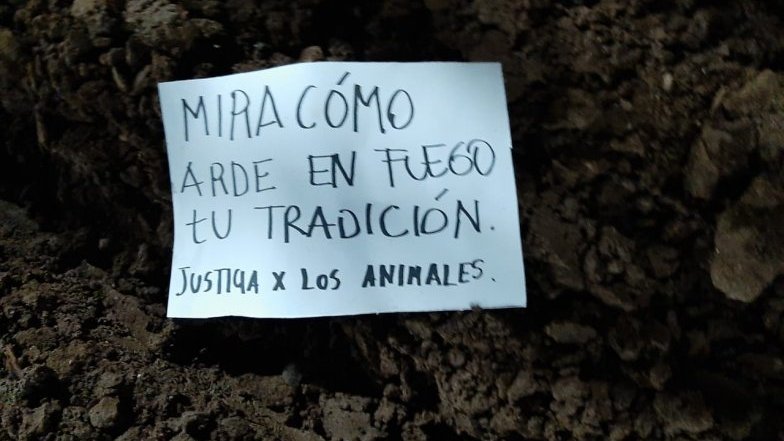 MIRA CÓMO
ARDE EN FUEGO
tU TRADICIÓN.
JUSTICIA X LOS ANIMALES.